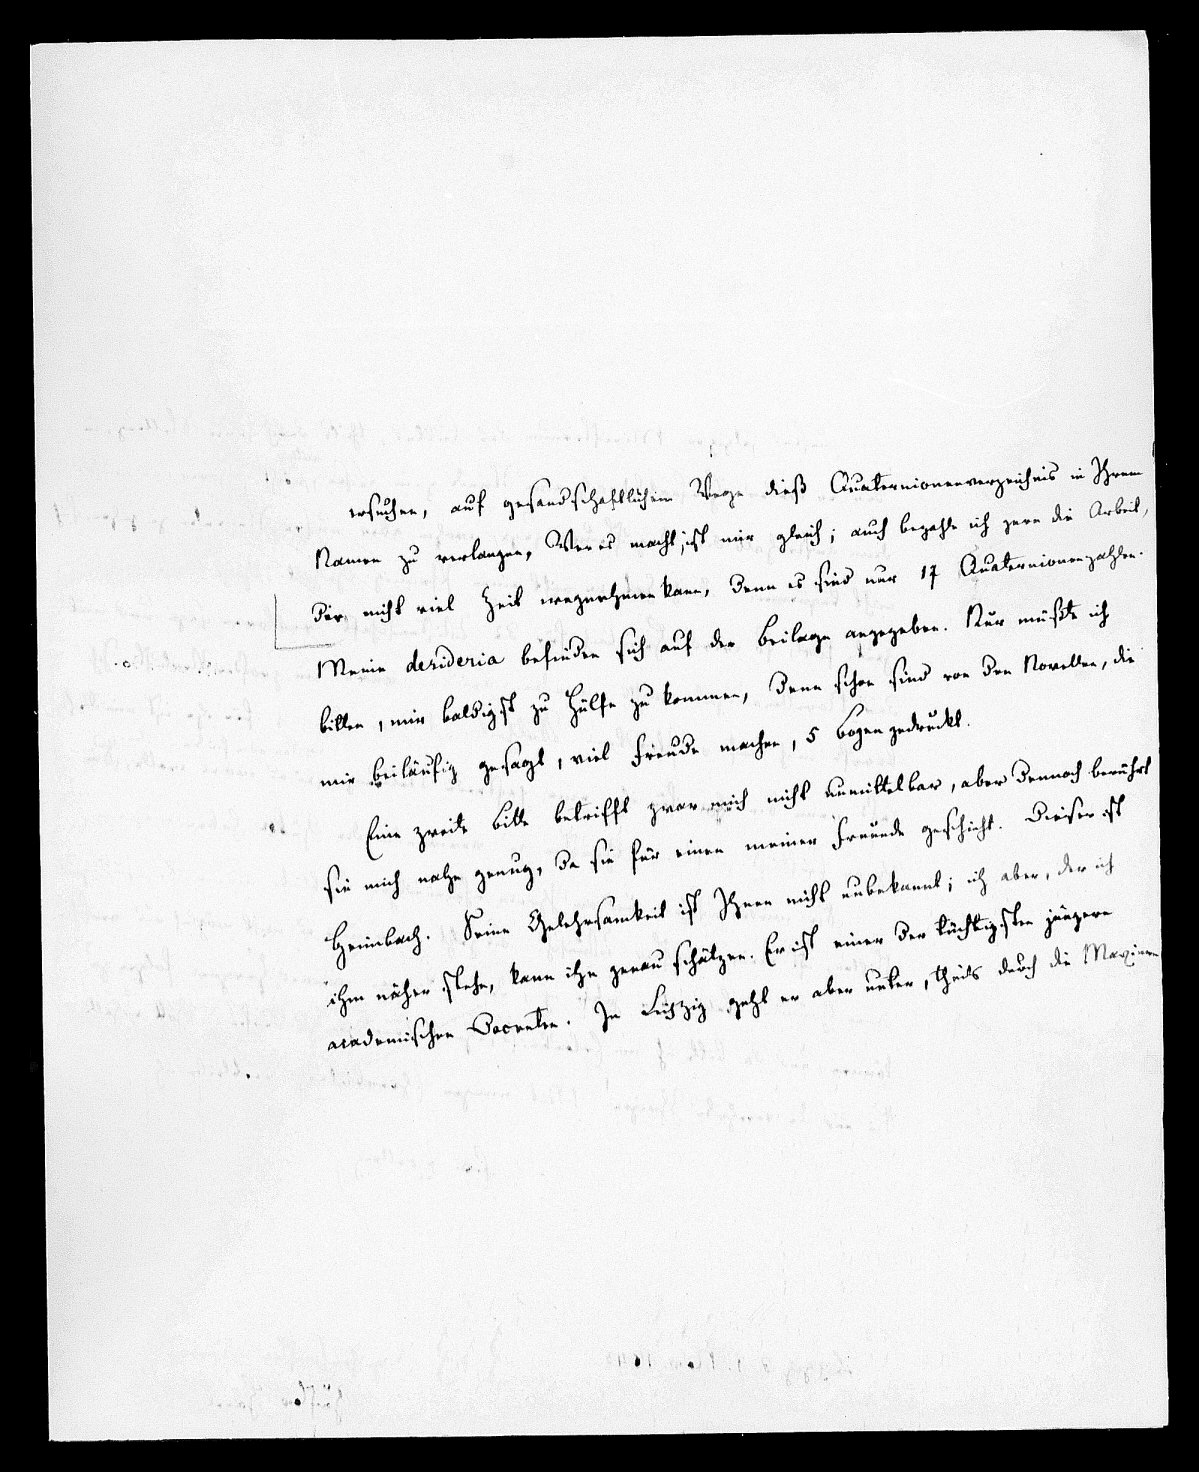 ersuchen, auf gesandschaftlichem Wege dieß Quaternionenverzeichnis in Ihrem
Namen zu verlangen. Wer es macht, ist mir gleich; auch bezahle ich gern die Arbeit,
die nicht viel Zeit wegnehmen kann, denn es sind nur 17 Quaternionenzahlen.
Meine desideria befinden sich auf der Beilage angegeben. Nur müßte ich
bitten, mir baldigst zu Hülfe zu kommen, denn schon sind von den Novellen, die
mir beiläufig gesagt, viel Freude machen, 5 Bogen gedruckt.
Eine zweite Bitte betrifft zwar mich nicht unmittelbar, aber dennoch berührt
sie mich nahe genug, da sie für einen meiner Freunde geschieht. Dieser ist
Heimbach. Seine Gelehrsamkeit ist Ihnen nicht unbekannt; ich aber, der ich
ihm näher stehe, kann ihn genau schätzen. Er ist einer der tüchtigsten jüngern
academischen Docenten. In Leipzig geht er aber unter, theils durch die Maximen